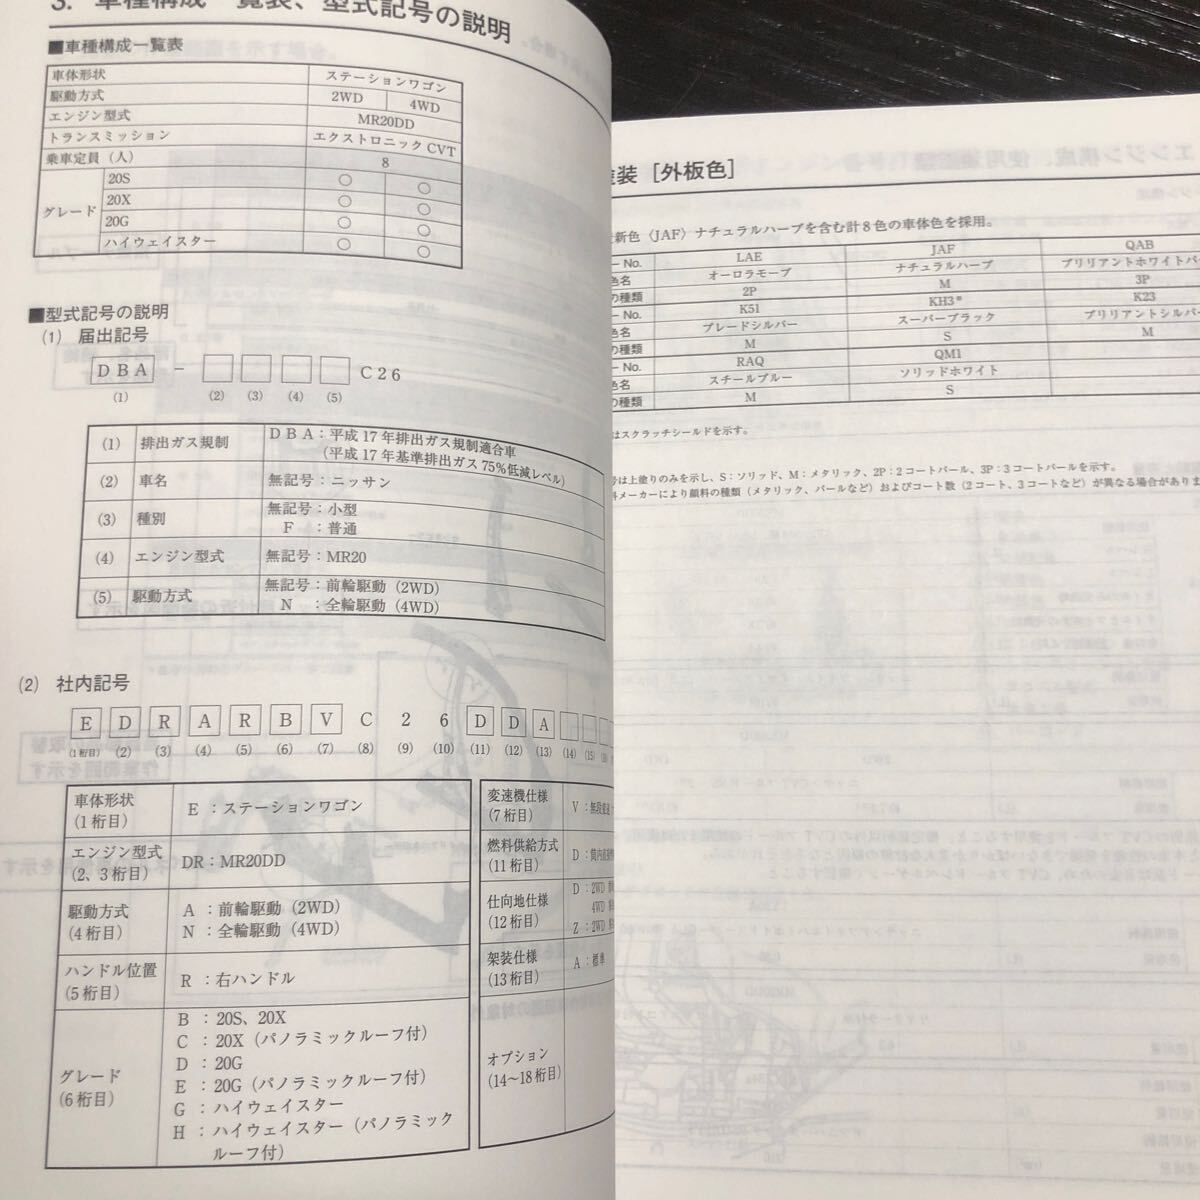 3. 車種構成一覧表、型式記号の説明
■車種構成一覧表
車体形状 ステーションワゴン
駆動方式 2WD 4WD
エンジン型式 MR20DD
トランスミッション エクストロニックCVT
乗車定員(人) 8
グレード 20S ○ ○
20X ○ ○
20G ○ ○
ハイウェイスター ○ ○
■型式記号の説明
(1) 届出記号
DBA － □ □ □ □ C26
(1) (2) (3) (4) (5)
(1) 排出ガス規制 DBA：平成17年排出ガス規制適合車
(平成17年基準排出ガス75%低減レベル)
(2) 車名 無記号：ニッサン
(3) 種別 無記号：小型
F ：普通
(4) エンジン型式 無記号：MR20
(5) 駆動方式 無記号：前輪駆動(2WD)
N ：全輪駆動(4WD)
(2) 社内記号
E D R A R B V C 2 6 D D A
(1桁目) (2) (3) (4) (5) (6) (7) (8) (9) (10) (11) (12) (13) (14) (15)
車体形状
(1桁目)
E ：ステーションワゴン
エンジン型式
(2、3桁目)
DR：MR20DD
駆動方式
(4桁目)
A ：前輪駆動(2WD)
N ：全輪駆動(4WD)
ハンドル位置
(5桁目)
R ：右ハンドル
グレード
(6桁目)
B ：20S、20X
C ：20X(パノラミックルーフ付)
D ：20G
E ：20G(パノラミックルーフ付)
G ：ハイウェイスター
H ：ハイウェイスター(パノラミック
ルーフ付)
変速機仕様
(7桁目)
V ：無段変速
燃料供給方式
(11桁目)
D ：筒内直接
仕向地仕様
(12桁目)
D ：2WD
4WD
Z ：2WD
架装仕様
(13桁目)
A ：標準
オプション
(14〜18桁目)
塗装［外板色］
新色〈JAF〉ナチュラルハーブを含む計8色の車体色を採用。
No. LAE JAF QAB
色名 オーロラモーブ ナチュラルハーブ ブリリアントホワイトパ
の種類 2P M 3P
No. K51 KH3* K23
色名 ブレードシルバー スーパーブラック ブリリアントシルバー
の種類 M S M
No. RAQ QM1
色名 スチールブルー ソリッドホワイト
の種類 M S
はスクラッチシールドを示す。
号は上塗りのみを示し、S：ソリッド、M：メタリック、2P：2コートパール、3P：3コートパールを示す。
料メーカーにより顔料の種類(メタリック、パールなど)およびコート数(2コート、3コートなど)が異なる場合がありま